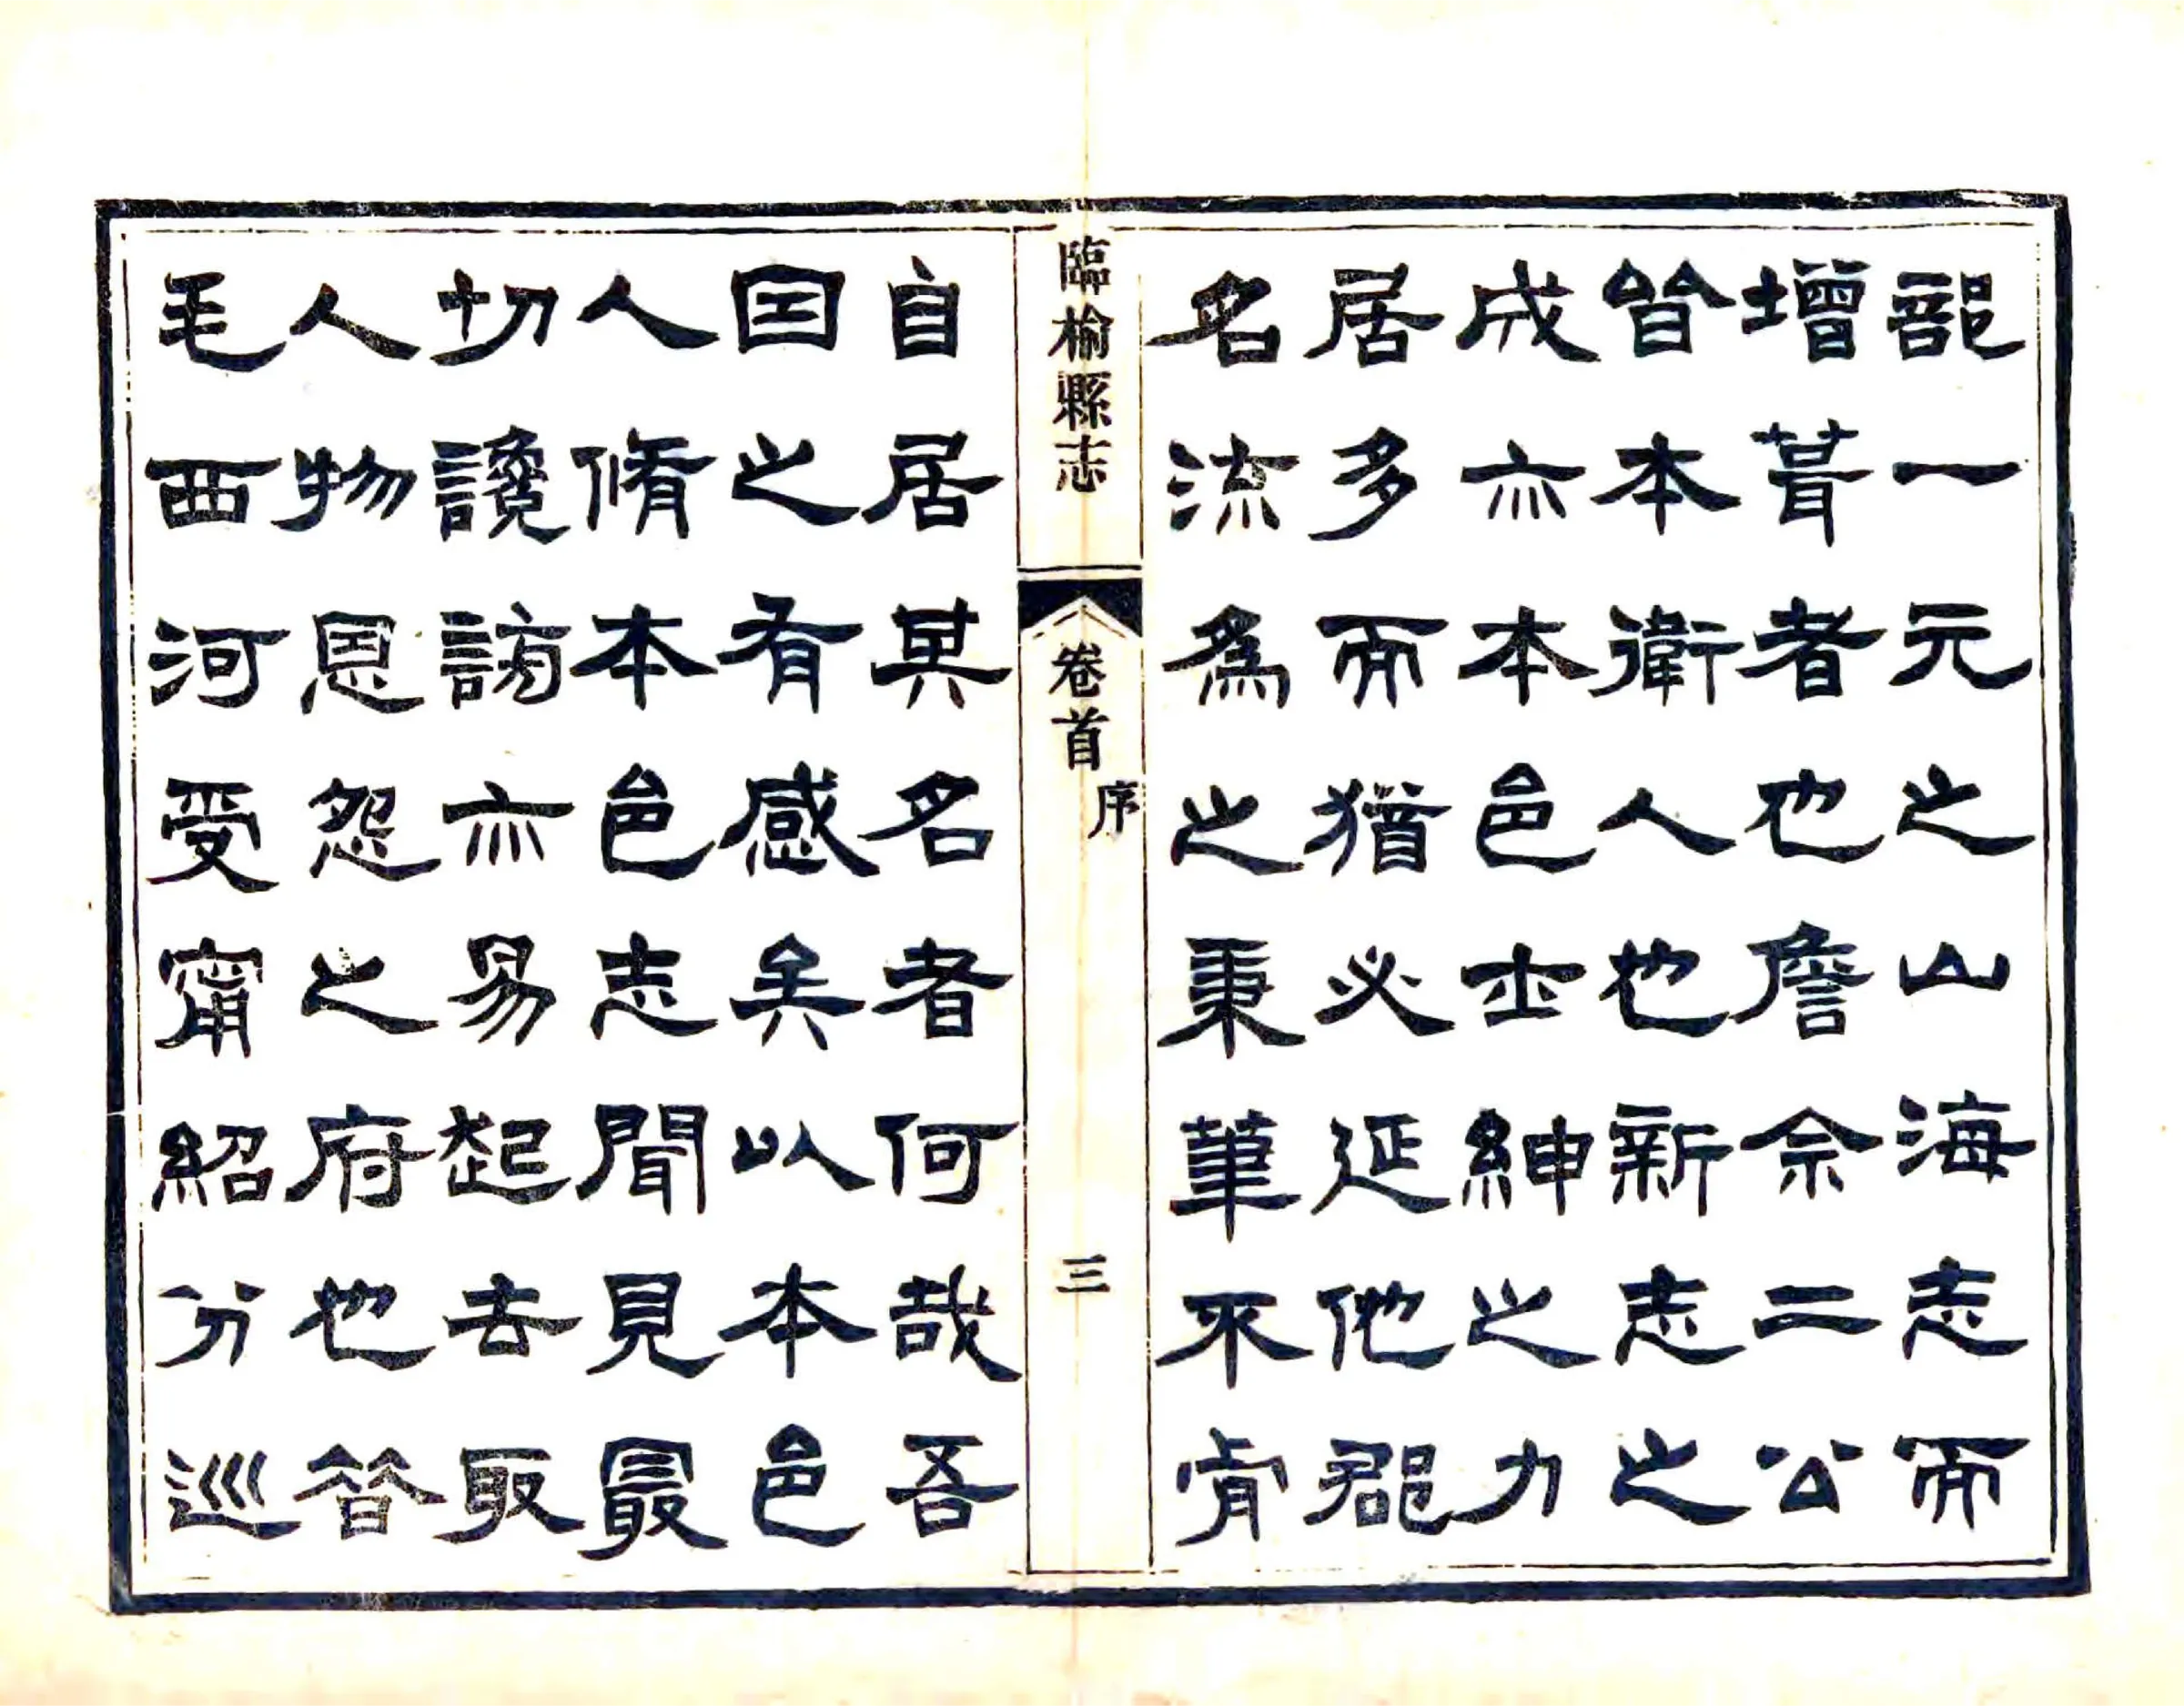 部一元之山海志而
增葺者也詹佘二公
皆本衛人也新志之
成亦本邑士紳之力
居多而猶必延他郡
名流爲之秉筆不肯
臨榆縣志
卷首
序
三
自居其名者何哉吾
因之有感矣以本邑
人脩本邑志聞見最
切讒謗亦易起去取
人物恩怨之府也昔
毛西河受甯紹分巡